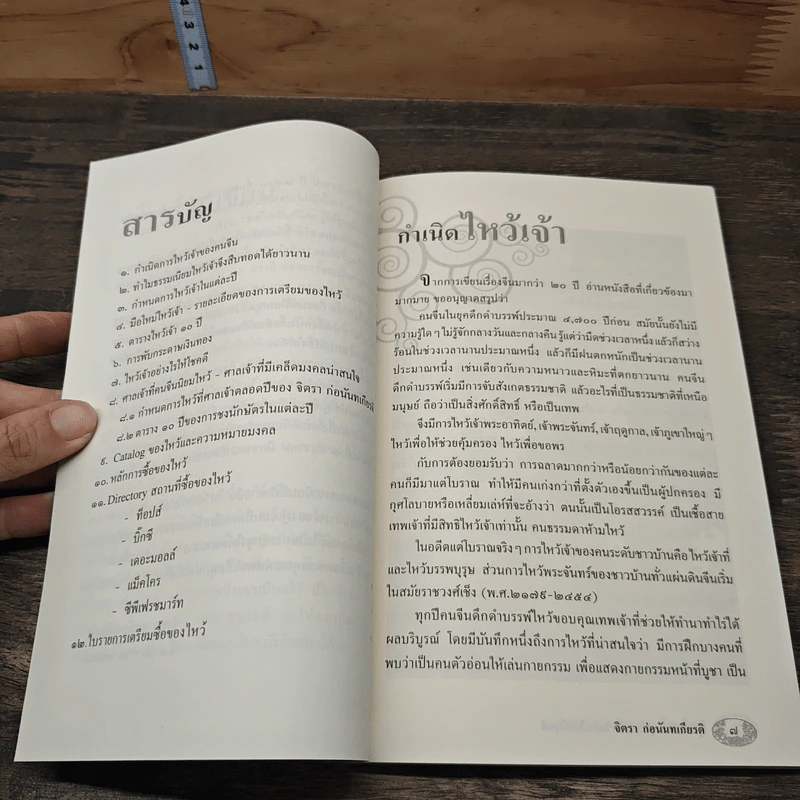 4
3
2
1
สารบัญ
๑. กำเนิดการไหว้เจ้าของคนจีน
๒. ทำไมธรรมเนียมไหว้เจ้าจึงสืบทอดได้ยาวนาน
๓. กำหนดการไหว้เจ้าในแต่ละปี
๔. มือใหม่ไหว้เจ้า - รายละเอียดของการเตรียมของไหว้
๕. ตารางไหว้เจ้า ๑๐ ปี
๖. การพับกระดาษเงินทอง
๗. ไหว้เจ้าอย่างไรให้โชคดี
๘. ศาลเจ้าที่คนจีนนิยมไหว้ - ศาลเจ้าที่มีเคล็ดมงคลน่าสนใจ
๘.๑ กำหนดการไหว้ที่ศาลเจ้าตลอดปีของ จิตรา ก่อนันทเกียรติ
๘.๒ ตาราง ๑๐ ปีของการชงนักษัตรในแต่ละปี
๙. Catalog ของไหว้และความหมายมงคล
๑๐. หลักการซื้อของไหว้
๑๑. Directory สถานที่ซื้อของไหว้
- ท็อปส์
- บิ๊กซี
- เดอะมอลล์
- แม็คโคร
- ซีพีเฟรชมาร์ท
๑๒. ใบรายการเตรียมซื้อของไหว้
กำเนิดไหว้เจ้า
จากการเขียนเรื่องจีนมากว่า ๒๐ ปี อ่านหนังสือที่เกี่ยวข้องมา
มากมาย ขออนุญาตสรุปว่า
คนจีนในยุคดึกดำบรรพ์ประมาณ ๔,๗๐๐ ปีก่อน สมัยนั้นยังไม่มี
ความรู้ใดๆ ไม่รู้จักกลางวันและกลางคืน รู้แต่ว่ามีดช่วงเวลาหนึ่ง แล้วก็สว่าง
ร้อนในช่วงเวลานานประมาณหนึ่ง แล้วก็มีฝนตกหนักเป็นช่วงเวลานาน
ประมาณหนึ่ง เช่นเดียวกับความหนาวและหิมะที่ตกยาวนาน คนจีน
ดึกดำบรรพ์เริ่มมีการจับสังเกตธรรมชาติ แล้วอะไรที่เป็นธรรมชาติที่เหนือ
มนุษย์ ถือว่าเป็นสิ่งศักดิ์สิทธิ์ หรือเป็นเทพ
จึงมีการไหว้เจ้าพระอาทิตย์, เจ้าพระจันทร์, เจ้าฤดูกาล, เจ้าภูเขาใหญ่ๆ
ไหว้เพื่อให้ช่วยคุ้มครอง ไหว้เพื่อขอพร
กับการต้องยอมรับว่า การฉลาดมากกว่าหรือน้อยกว่ากันของแต่ละ
คนก็มีมาแต่โบราณ ทำให้มีคนเก่งกว่าที่ตั้งตัวเองขึ้นเป็นผู้ปกครอง มี
กุศโลบายหรือเหลี่ยมเล่ห์ที่จะอ้างว่า ตนนั้นเป็นโอรสสวรรค์ เป็นเชื้อสาย
เทพเจ้าที่มีสิทธิไหว้เจ้าเท่านั้น คนธรรมดาห้ามไหว้
ในอดีตแต่โบราณจริงๆ การไหว้เจ้าของคนระดับชาวบ้านคือไหว้เจ้าที่
และไหว้บรรพบุรุษ ส่วนการไหว้พระจันทร์ของชาวบ้านทั่วแผ่นดินจีนเริ่ม
ในสมัยราชวงศ์เช็ง (พ.ศ.๒๑๗๙-๒๔๕๔)
ทุกปีคนจีนดึกดำบรรพ์ไหว้ขอบคุณเทพเจ้าที่ช่วยให้ทำนาทำไร่ได้
ผลบริบูรณ์ โดยมีบันทึกหนึ่งถึงการไหว้ที่น่าสนใจว่า มีการฝึกบางคนที่
พบว่าเป็นคนตัวอ่อนให้เล่นกายกรรม เพื่อแสดงกายกรรมหน้าที่บูชา เป็น
จิตรา ก่อนันทเกียรติ ๗